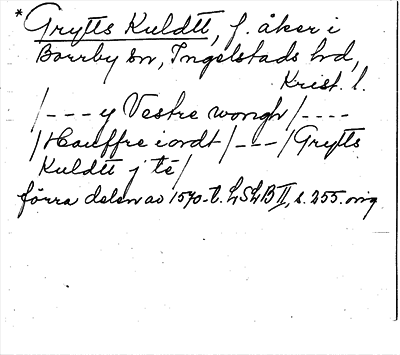 * Grytts Kuldtt, f. åker i
Borrby sn, Ingelstads hd,
Krist. l.
/--- y Vestre wongh/----
/Hauffre iordt/---/Grytts
Kuldtt j tē/
förra delen av 1570-t. LSLB II, s. 255. orig